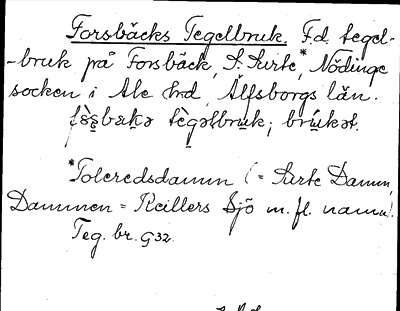 Forsbäcks Tegelbruk. F.d. tegel-
-bruk på Forsbäck, S. Surte*, Nödinge
socken i Ale hrd, Älfsborgs län.
tègəlbruk; brukət.
*Toleredsdamm (= Surte Damm,
Dammen = Keillers Sjö m.fl. namn).
Teg. br. G32.